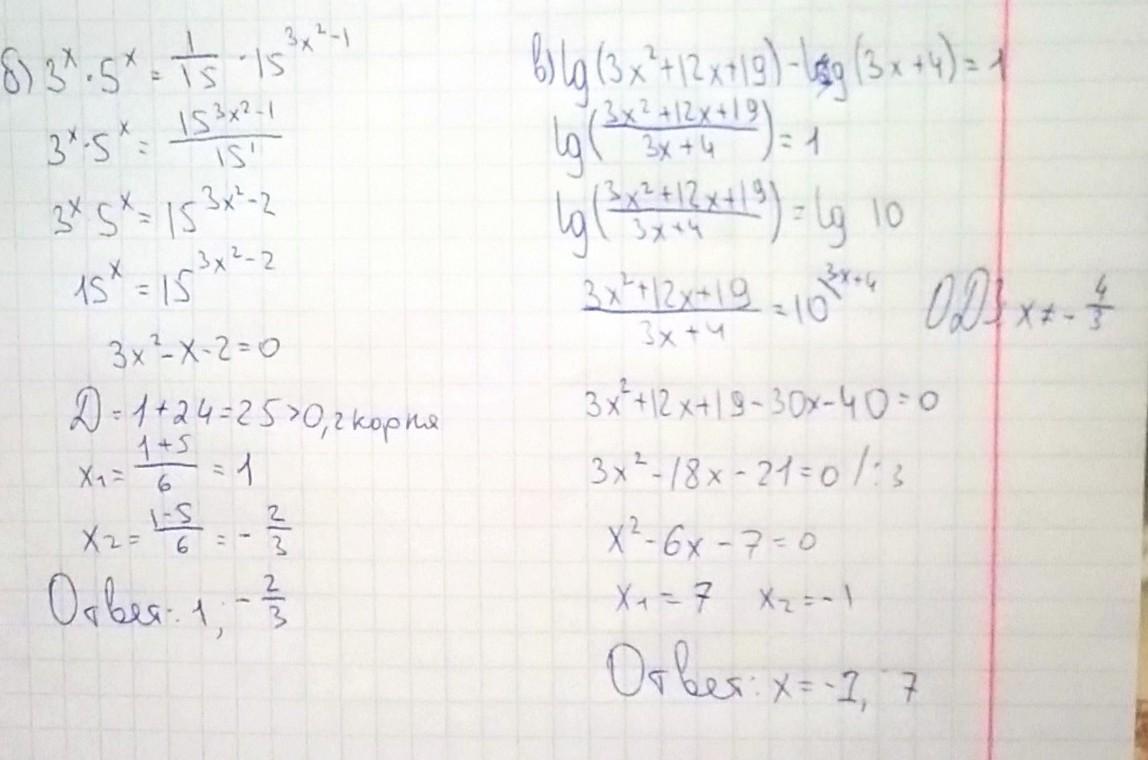 б) 3^x · 5^x = 1/15 · 15^(3x²-1)
3^x · 5^x = 15^(3x²-1)/15¹
3^x · 5^x = 15^(3x²-2)
15^x = 15^(3x²-2)
3x² - x - 2 = 0
D = 1 + 24 = 25 > 0, 2 корня
x₁ = (1+5)/6 = 1
x₂ = (1-5)/6 = - 2/3
Ответ: 1; - 2/3
в) lg (3x² + 12x + 19) - lg (3x + 4) = 1
lg ((3x² + 12x + 19)/(3x + 4)) = 1
lg ((3x² + 12x + 19)/(3x + 4)) = lg 10
(3x² + 12x + 19)/(3x + 4) = 10 \3x+4 ОДЗ x ≠ - 4/3
3x² + 12x + 19 - 30x - 40 = 0
3x² - 18x - 21 = 0 / : 3
x² - 6x - 7 = 0
x₁ = 7 x₂ = -1
Ответ: x = -1, 7